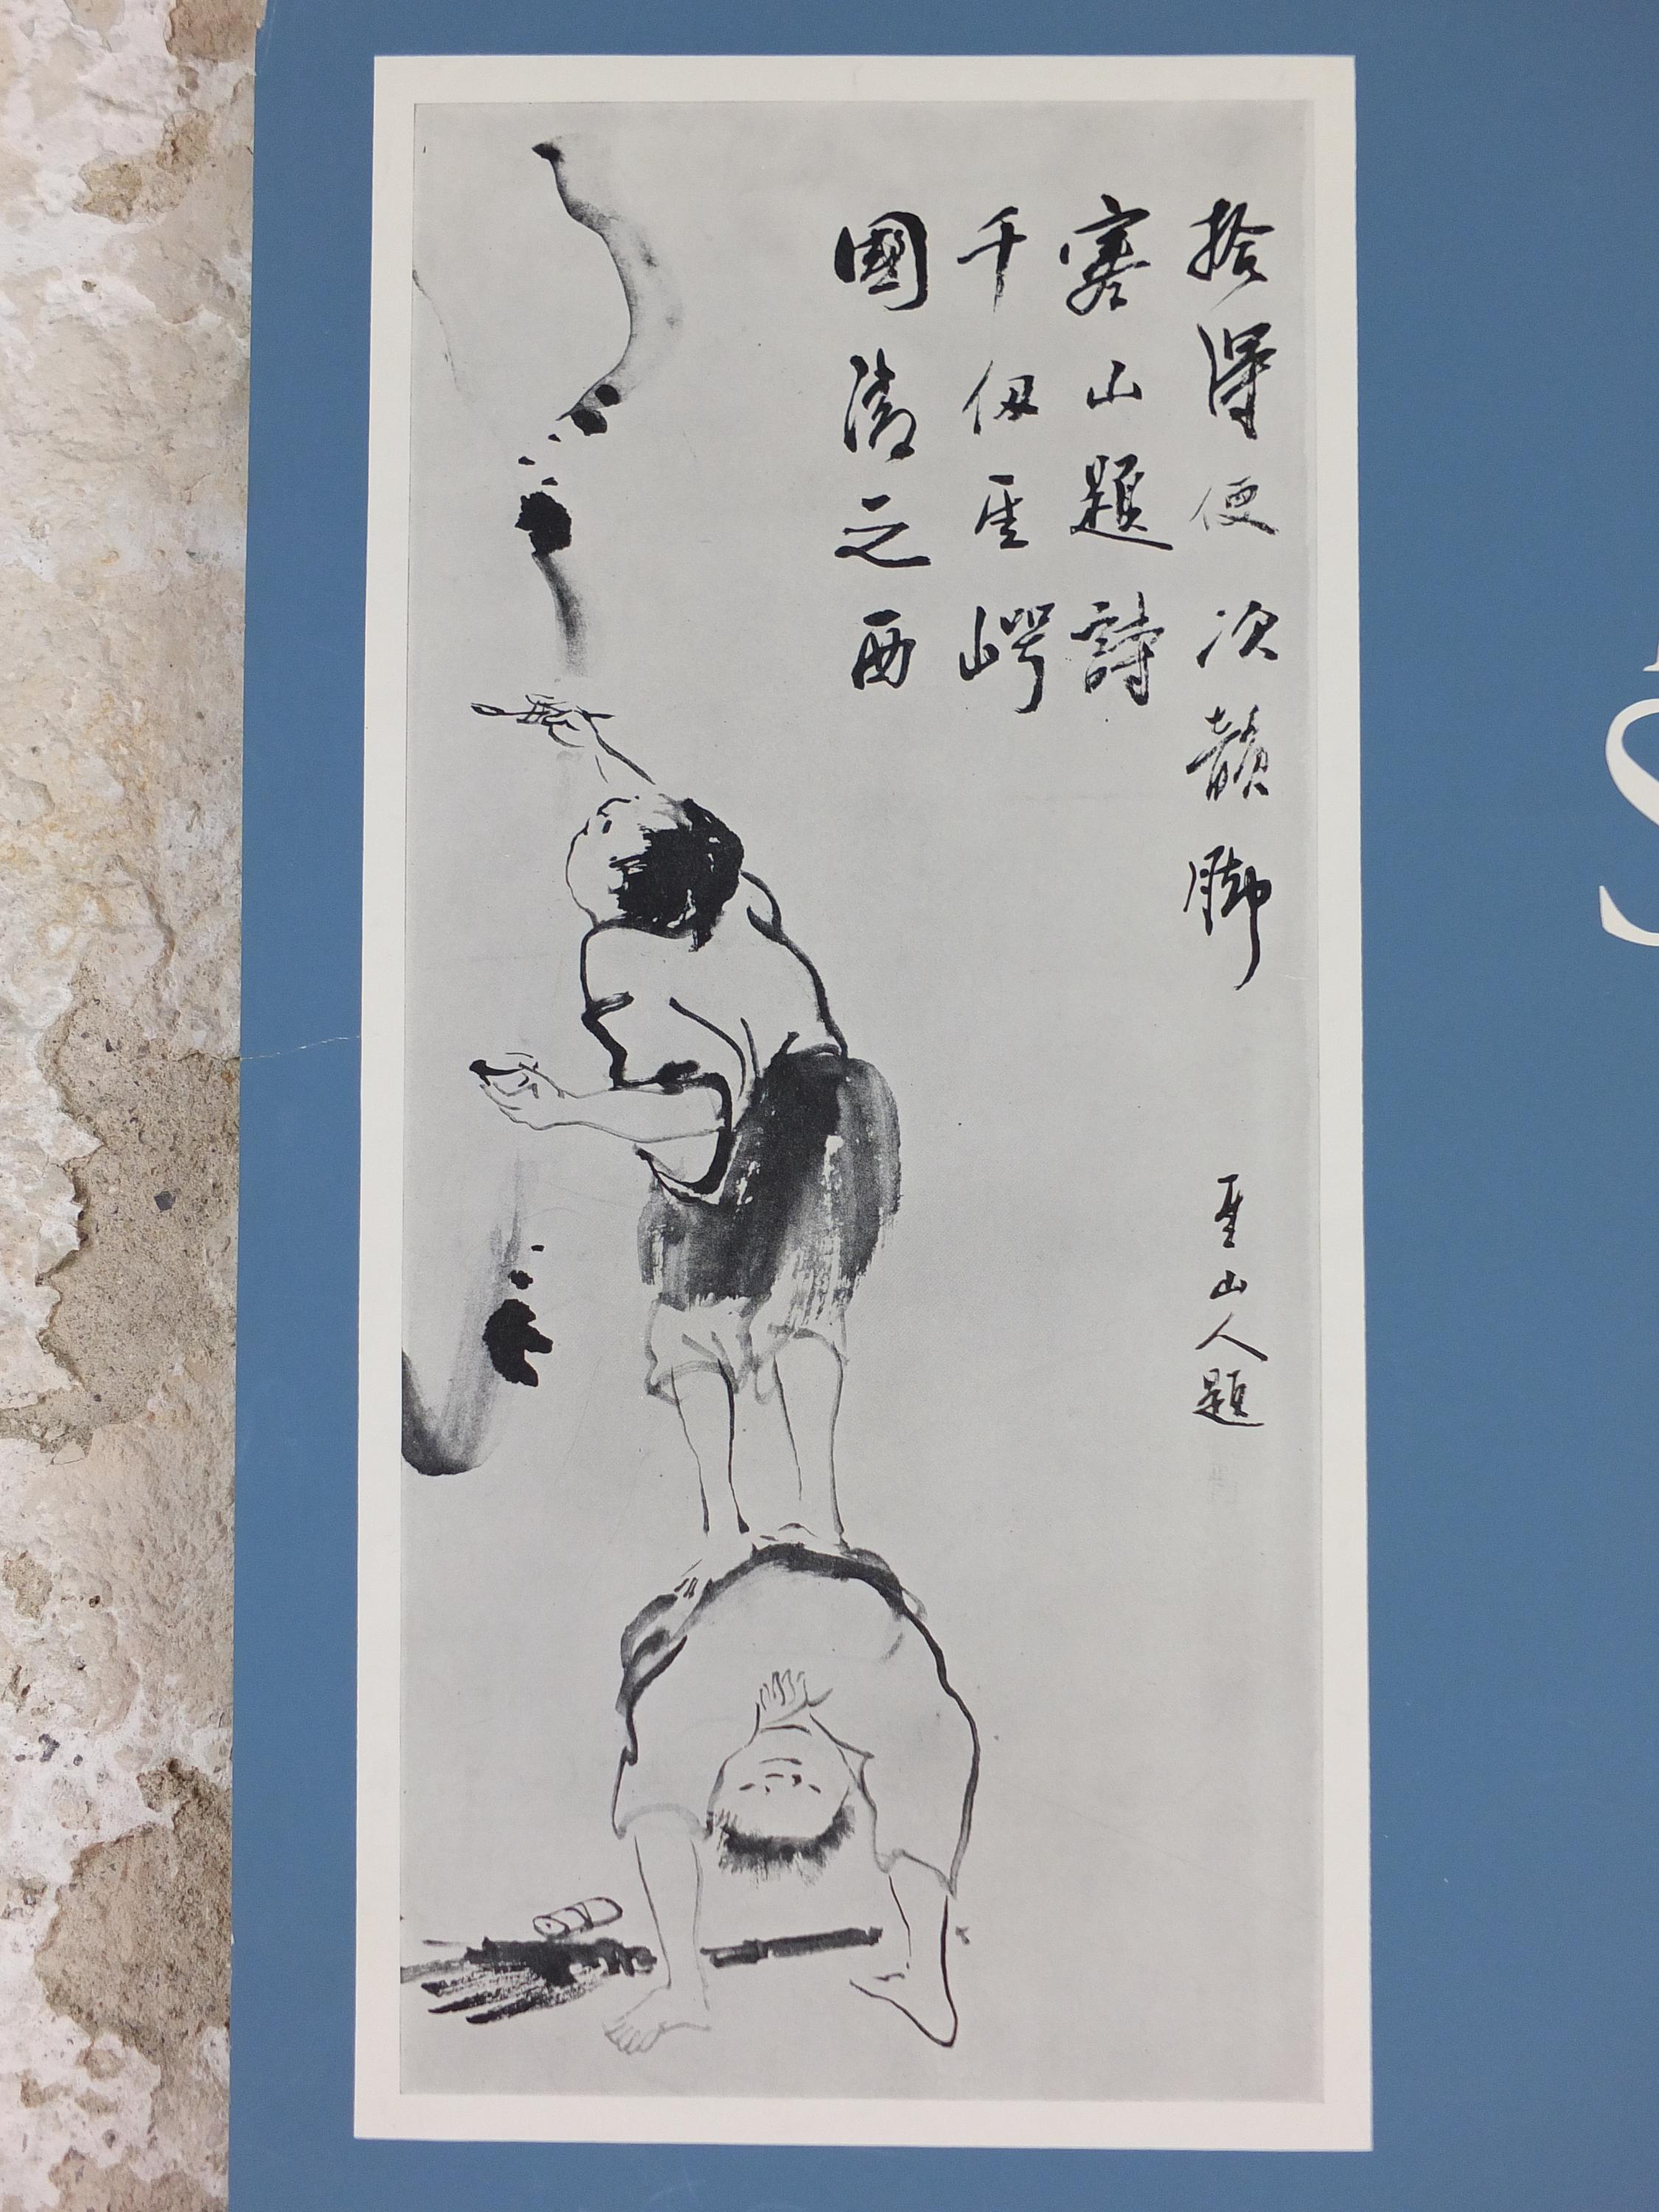 拾得便次韻脚
寒山題詩
千仭厓崿
國清之西
厓山人題
S